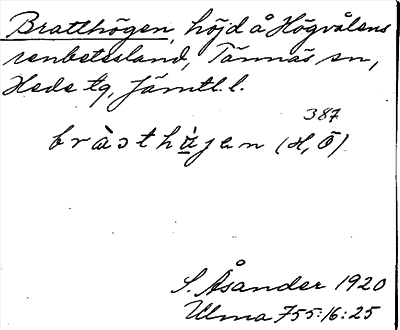 Bratthögen, höjd å Högvålens
renbetesland, Tännäs sn,
Hede tg, Jämtl. l.
387
(H, Ö)
S. Åsander 1920
Ulma 755:16:25